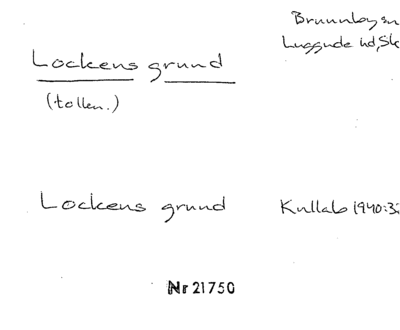 Brunnby sn
Luggude hd, Sk
Lockens grund
(tollen.)
Lockens grund
Kullab 1940:3
Nr 21750